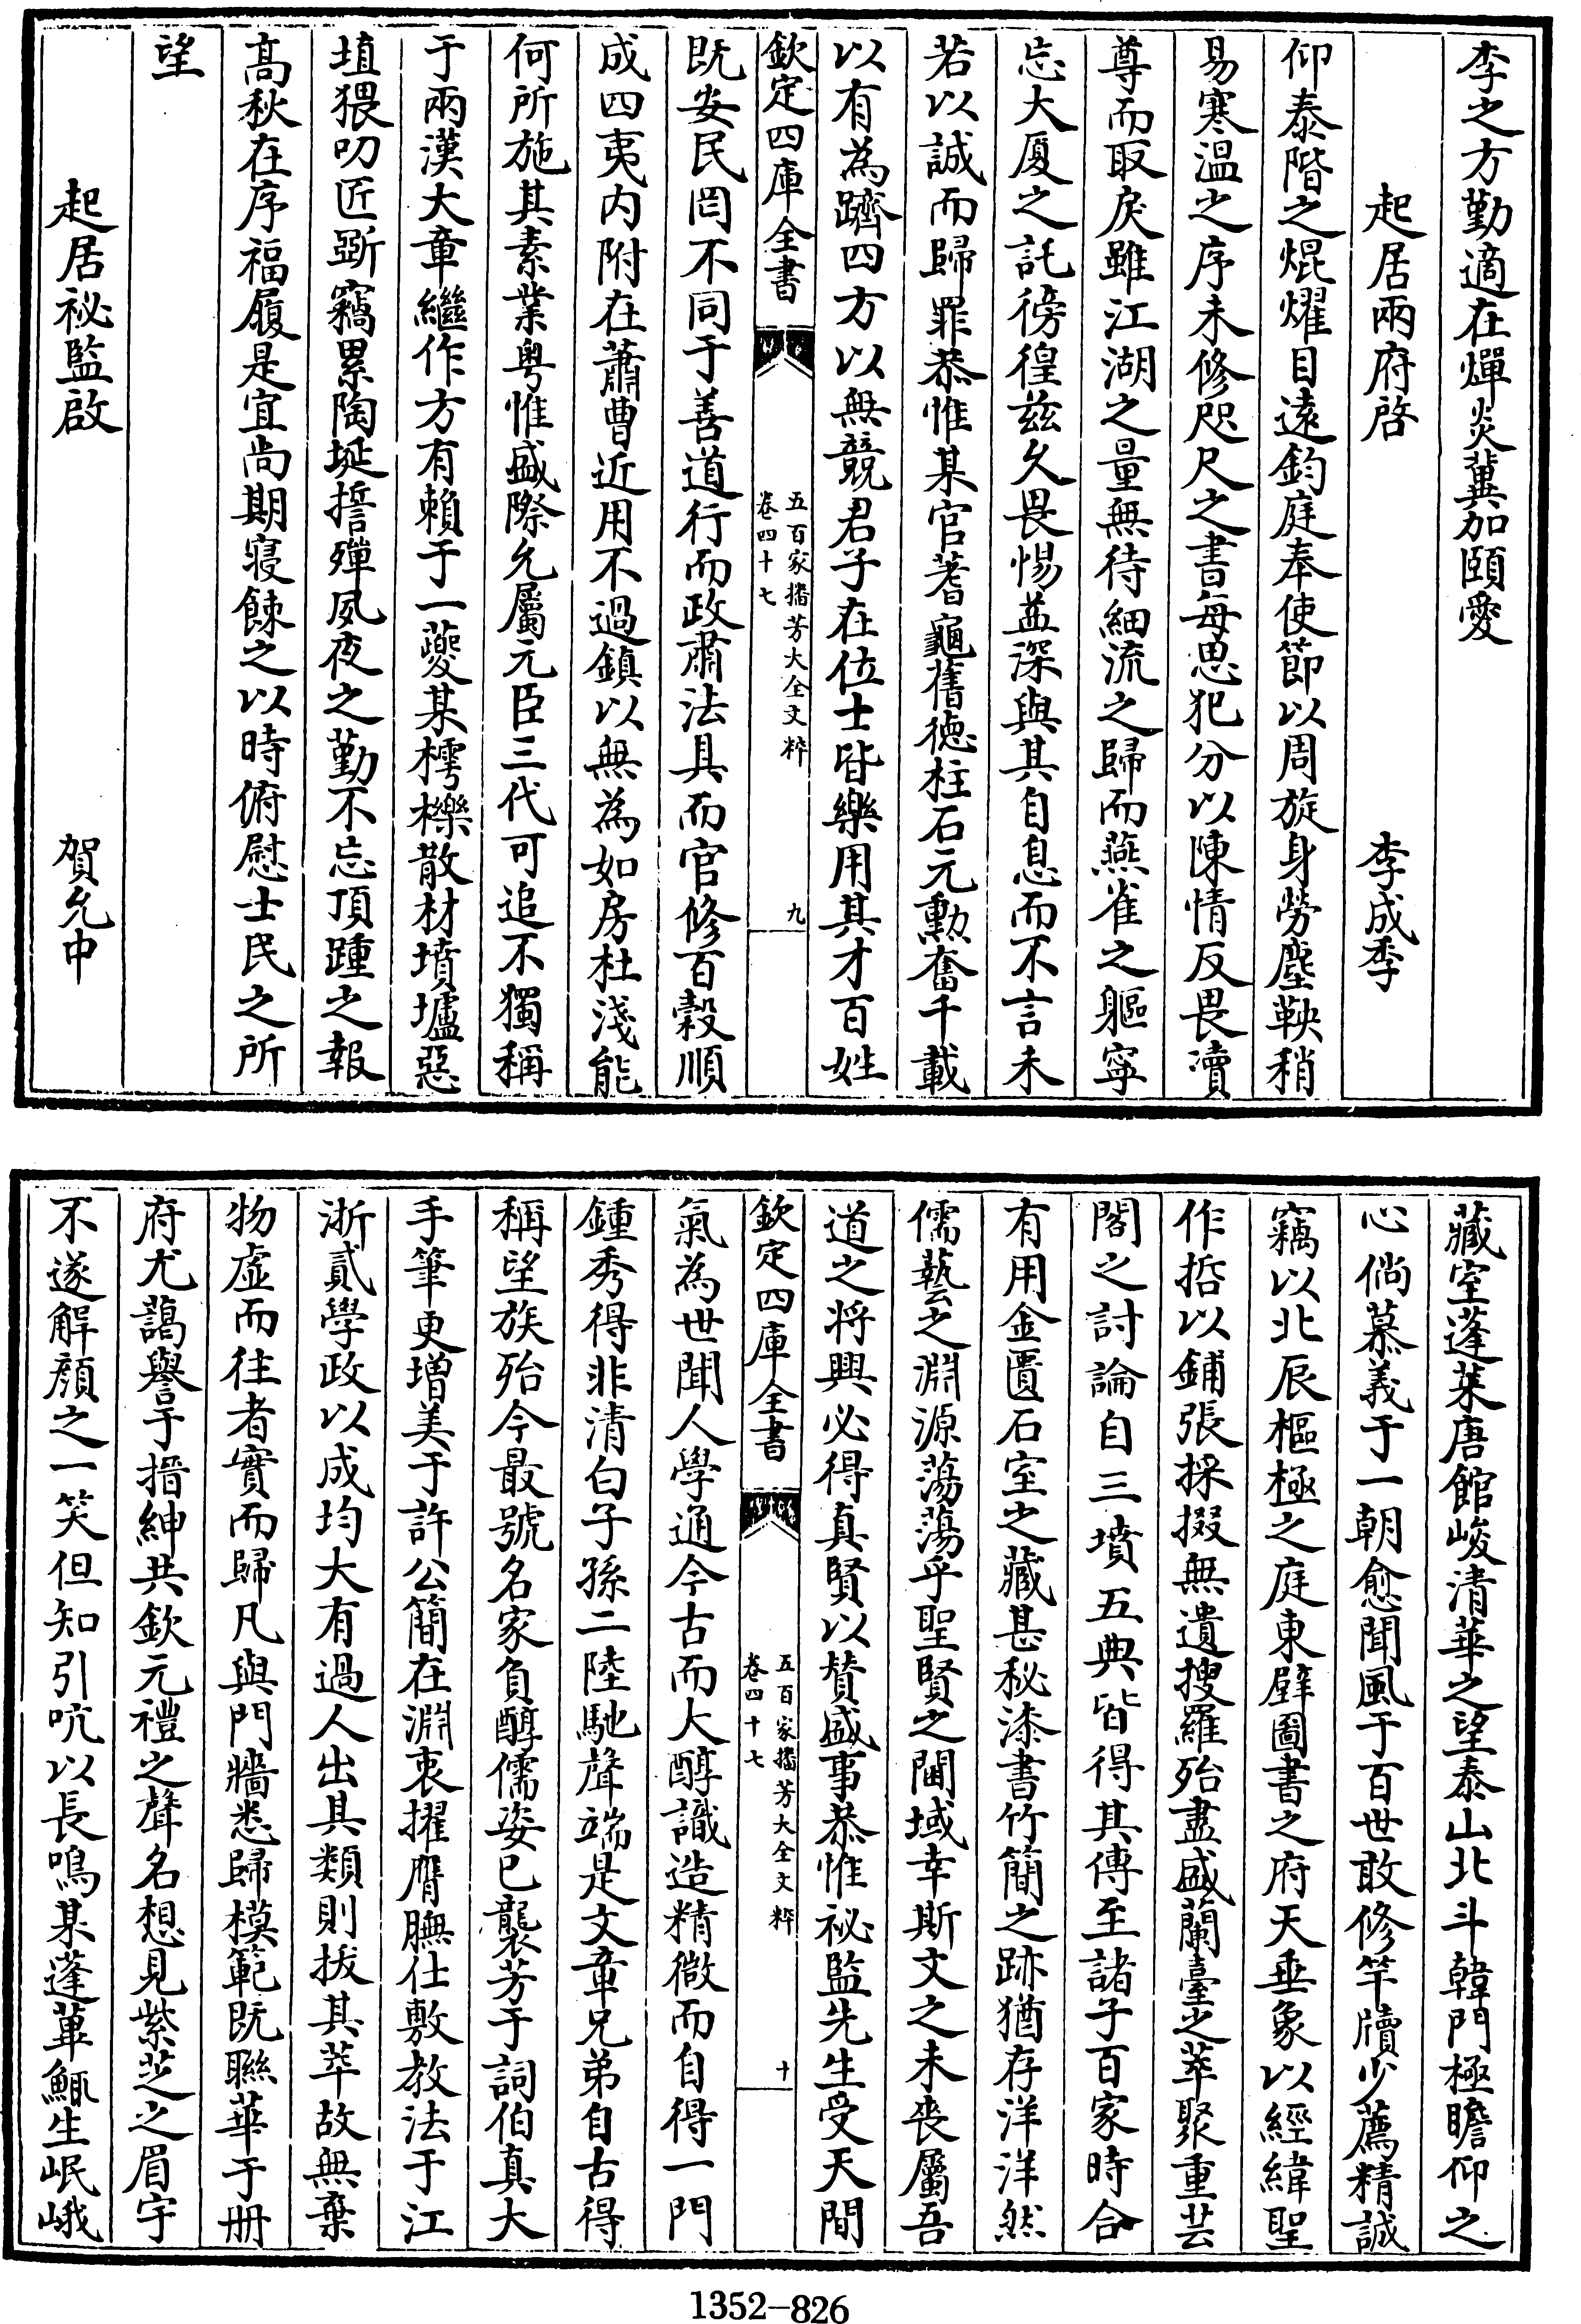 李之方勤適在燀炎冀加頤愛
起居兩府啓　李成季
仰泰階之焜燿目遠鈞庭奉使節以周旋身勞塵鞅稍
易寒溫之序未修咫尺之書每思犯分以陳情反畏瀆
尊而取戾雖江湖之量無待細流之歸而燕雀之軀寧
忘大厦之託徬徨兹久畏惕益深與其自息而不言未
若以誠而歸罪恭惟某官蓍龜舊德柱石元勲奮千載
以有為躋四方以無競君子在位士皆樂用其才百姓
欽定四庫全書　五百家播芳大全文粹　卷四十七　九
既安民罔不同于善道行而政肅法具而官修百穀順
成四夷内附在蕭曹近用不過鎮以無為如房杜淺能
何所施其素業粤惟盛際允屬元臣三代可追不獨稱
于兩漢大章繼作方有賴于一夔某樗櫟散材墳壚惡
埴猥叨匠斲竊累陶埏誓殫夙夜之勤不忘頂踵之報
高秋在序福履是宜尚期寢餗之以時俯慰士民之所
望
起居祕監啟　賀允中
藏室蓬萊唐館峻清華之望泰山北斗韓門極瞻仰之
心倘慕義于一朝愈聞風于百世敢修竿牘少薦精誠
竊以北辰樞極之庭東壁圖書之府天垂象以經緯聖
作哲以鋪張採掇無遺搜羅殆盡盛蘭臺之萃聚重芸
閣之討論自三墳五典皆得其傳至諸子百家時合
有用金匱石室之藏甚秘漆書竹簡之跡猶存洋洋然
儒藝之淵源蕩蕩乎聖賢之閫域幸斯文之未喪屬吾
道之将興必得真賢以贊盛事恭惟祕監先生受天間
欽定四庫全書　五百家播芳大全文粹　卷四十七　十
氣為世聞人學通今古而大醇識造精微而自得一門
鍾秀得非清白子孫二陸馳聲端是文章兄弟自古得
稱望族殆今最號名家負醇儒姿已襲芳于詞伯真大
手筆更增美于許公簡在淵衷擢膺膴仕敷教法于江
浙貳學政以成均大有過人出其類則拔其萃故無棄
物虛而往者實而歸凡與門牆悉歸模範既聯華于册
府尤藹譽于搢紳共欽元禮之聲名想見紫芝之眉宇
不遂解顏之一笑但知引吭以長鳴某蓬蓽鯫生岷峨
1352-826